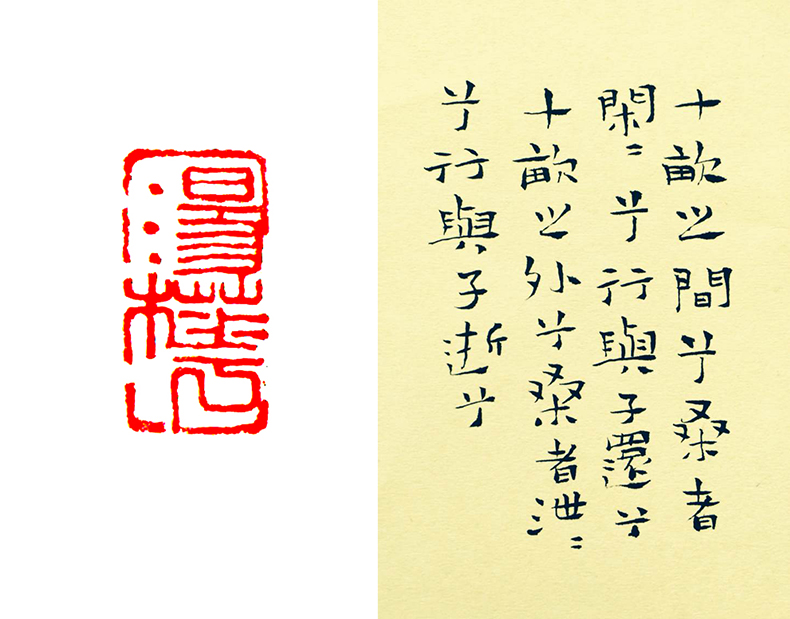 十畝之間兮桑者
閑〻兮行與子還兮
十畝之外兮桑者泄〻
兮行與子逝兮